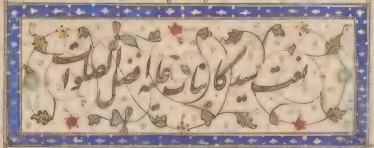 نعت سید کاینات علیه افضل الصلوات